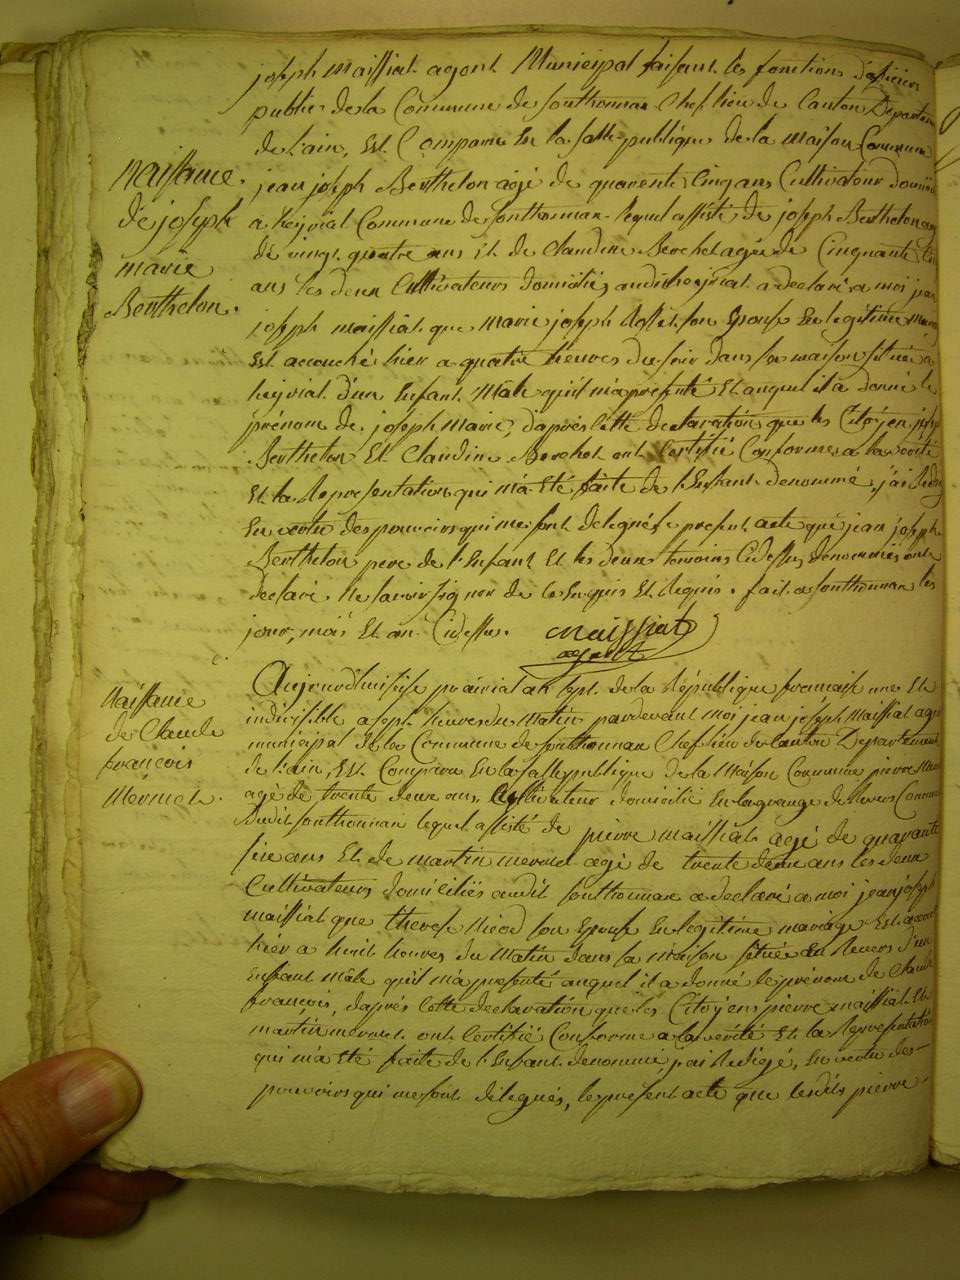 joseph Maissiat agent Municipal faisant les fonctions d'officier
public de la Commune de Sonthonnax Chef lieu de Canton Departem
de l'ain, Est Comparu En la salle publique de la maison Commune
Naissance
de joseph
marie
Berthelon.
jean joseph Berthelon agé de quarente cinq ans Cultivateur domicil
a heyriat Commune de Sonthonnax lequel assisté de joseph Berthelon agé
de vingt quatre ans Et de Claudine Berchet agée de Cinquante
ans les deux Cultivateurs domiciliés audit heyriat a declaré a moi jean
joseph maissiat que marie joseph son Epouse En legitime mariage
Est accouché hier a quatre heures du soir dans sa maison située a
heyriat d'un Enfant Mâle qu'il m'a presenté Et auquel il a donné le
prénom de joseph Marie, d'après cette declaration que les Citoyen joseph
Berthelon Et Claudine Berchet ont Certifié Conforme a la verité
Et la Representation qui m'a Eté faite de l'Enfant denommé, j'ai Redigé
En vertu des pouvoirs qui me sont delegués le present acte que jean joseph
Berthelon pere de l'Enfant Et les deux temoins Cidessus denommés ont
declaré Ne savoir signer de ce Enquis Et Requis. fait a Sonthonnax les
jour, mois Et an Cidessus. Maissiat
agent
Naissance
de Claude
françois
Mermet.
Aujourdhui seise prairial an sept de la République francaise une Et
indivisible a sept heures du Matin pardevant moi jean joseph Maissiat agent
municipal de la Commune de Sonthonnax Chef lieu de Canton Departement
de l'ain, Est Comparu En la salle publique de la Maison Commune pierre
agé de trente deux ans Cultivateur domicilié En la grange de Commune
dudit Sonthonnax lequel assisté de pierre Maissiat agé de quarante
six ans Et de martin mermet agé de trente ans les deux
Cultivateurs domiciliés audit Sonthonnax a declaré a moi jean joseph
maissiat que therese son Epouse En legitime mariage Est accouché
hier a huit heures du Matin dans la Maison située En d'un
Enfant Mâle qu'il m'a presenté auquel il a donné le prénom de Claude
françois, d'après cette declaration que les Citoyens pierre maissiat Et
martin mermet ont Certifié Conforme a la vérité Et la Representation
qui m'a Eté faite de l'Enfant denommé, j'ai Redigé, En vertu des
pouvoirs qui me sont délegués, le present acte que lesdits pierre